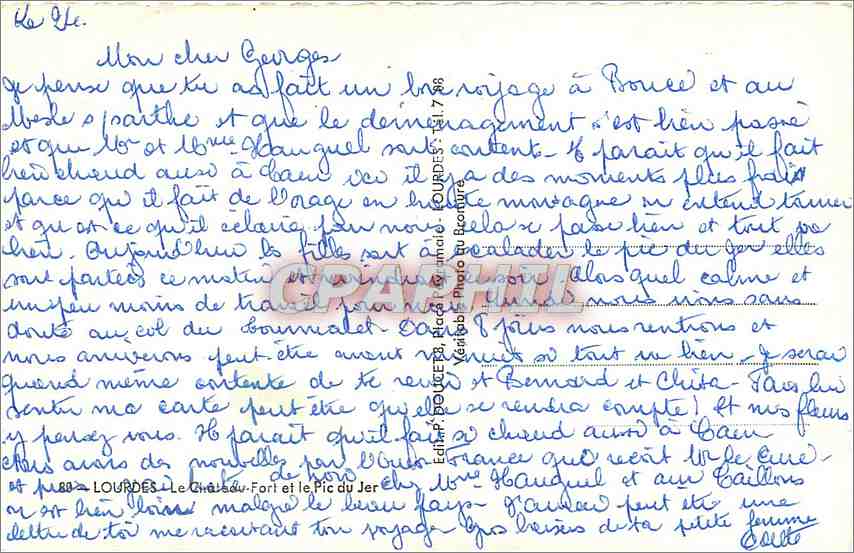 Le 24.
Mon cher Georges
Je pense que tu as fait un bon voyage à Boucé et au
Mesle s/sarthe et que le déménagement s'est bien passé
et que Mr et Mme Hauguel sont contents - Il parait qu'il fait
bien chaud aussi à Caen ici il y a des moments plus frais
parce qu'il fait de l'orage en haute montagne on entend tonner
et qu'est ce qu'il éclaire pour nous cela se passe bien et tout va
bien. Aujourd'hui les filles sont à escalader le pic du Jer elles
sont parties ce matin et ce soir Alors quel calme et
un peu moins de travail pour nous nous irons sans
doute au col du Tourmalet - Dans 8 jours nous rentrions et
nous arriverons peut-être avant minuit si tout va bien - Je serai
quand même contente de te revoir et Bernard et Chita - Fais lui
sentir ma carte peut être qu'elle se rendra compte! Et mes fleurs
y pensez vous. Il parait qu'il fait si chaud aussi à Caen
nous avons des nouvelles par l'Ouest-France que reçoit Mr le Curé -
et puis de voir chez Mme Hauguel et aux Taillons
on est bien loin malgré le beau pays - J'aurai peut être une
lettre de toi me racontant ton voyage Gros baisers de ta petite femme
Odette
80 - LOURDES - Le Château-Fort et le Pic du Jer
Edit. P. DOUCET, 3, Place Peyramale - LOURDES - Tél. 7-88
Véritable Photo au Bromure
CPAPHIL